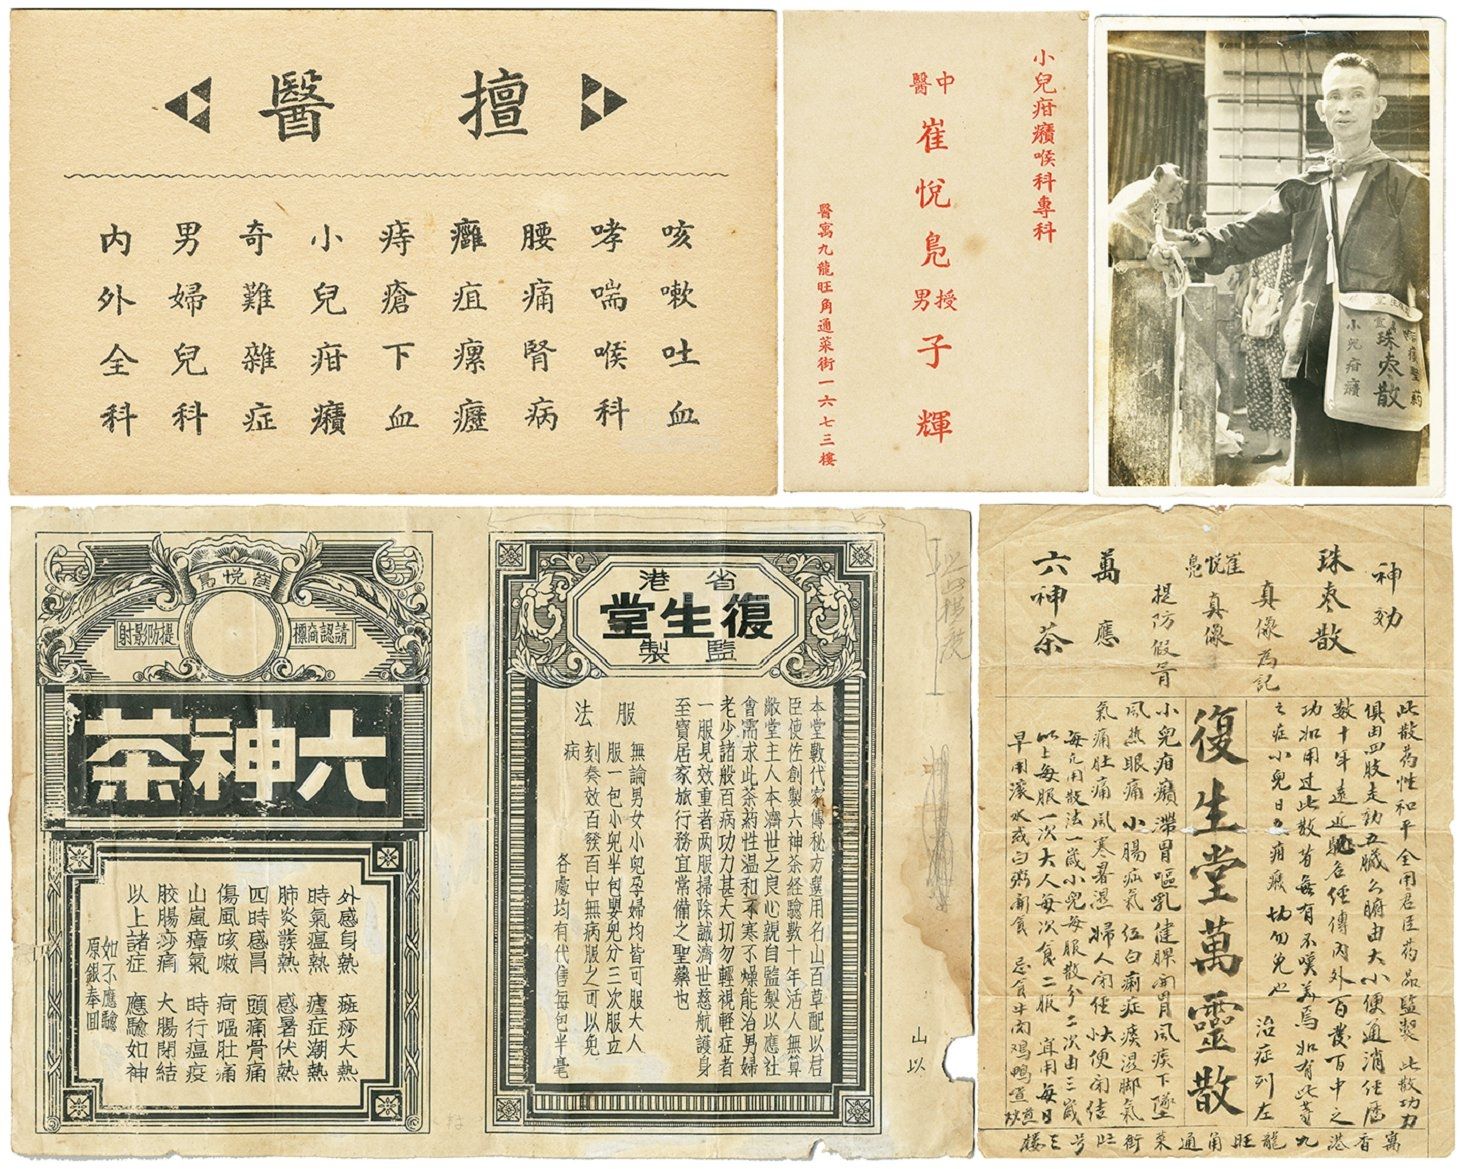 擅醫
咳嗽吐血
哮喘喉科
腰痛腎病
癰疽瘰癧
痔瘡下血
小兒疳癪
奇難雜症
男婦兒科
内外全科
小兒疳癪喉科專科
中醫
崔悅鳧
授男
子輝
醫寓九龍旺角通菜街一六七三樓
珠枣散
小兒疳癪
崔悅鳧
請認商標
提防影射
六神茶
外感身熱 斑痧大熱
時氣瘟熱 瘧症潮熱
肺炎喉熱 感暑伏熱
四時感冒 頭痛骨痛
傷風咳嗽 疴嘔肚痛
山嵐瘴氣 時行瘟疫
膠腸莎痛 大腸閉結
以上諸症 應驗如神
如不應驗
原銀奉回
省港
復生堂
監製
本堂數代家傳秘方選用名山百草配以君
臣使佐創製六神茶経驗數十年活人無算
敝堂主人本濟世之良心親自監製以應社
會需求此茶葯性温和不寒不燥能治男婦
老少諸般百病功力甚大切勿輕視輕症者
一服見效重者两服掃除誠濟世慈航護身
至寶居家旅行務宜常備之聖藥也
服法
無論男女小兒孕婦均皆可服大人
服一包小兒半包嬰兒分三次服立
刻奏效百發百中無病服之可以免
病
各處均有代售每包半毫
山以
神効
珠枣散
真像為記
崔悅鳧
真像
提防假冒
萬應
六神茶
此散药性和平全用君臣药品監製 此散功力
俱由四肢走功五臟六腑由大小便通消任歷
數十年遠近馳名任傳內外百發百中之
功如用过此散者無有不嘆美焉如有此等
之症小兒日久疳瘦切勿免也 治症列左
復生堂萬靈散
小兒疳癪滯胃嘔乳健脾開胃風痰下墜
風熱眼痛小腸疝氣伍白痢症痰濕脚氣
氣痛肚痛風寒暑濕婦人闭任大便闭结
每元用散法一歲小兒每服散分二次由三歲
以上每服一次大人每次食二服 宜用每日
早用滚水或白粥喇食 忌食牛肉鸡鴨煎炒
寓香港九龍旺角通菜街号三楼